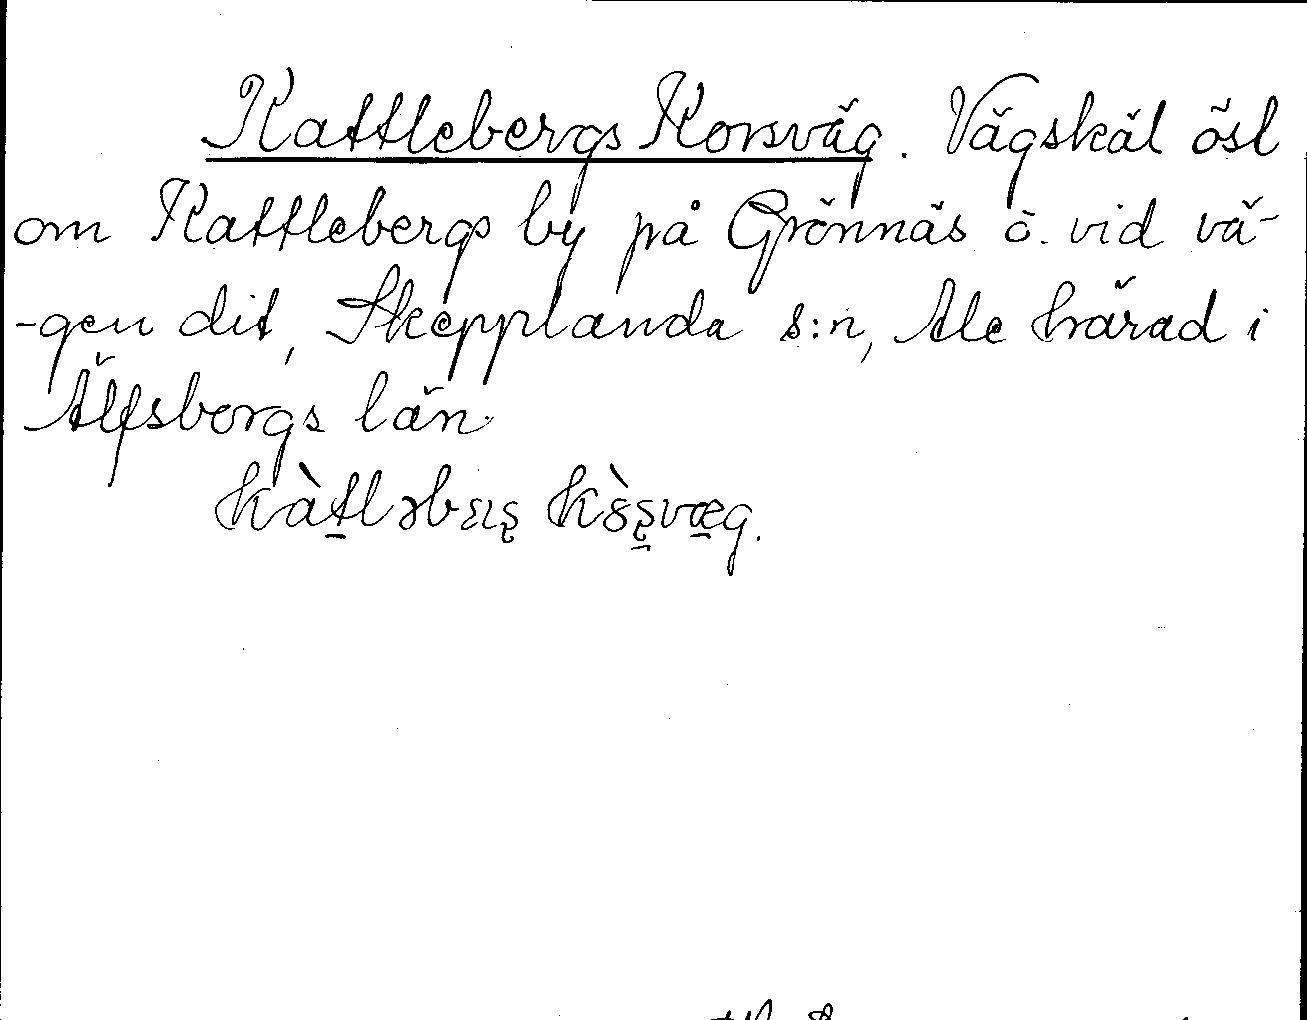 Kattlebergs Korsväg. Vägskäl ösl
om Kattlebergs by på Grönnäs ö. vid vä-
-gen dit, Skepplanda s:n, Ale härad i
Älfsborgs län.